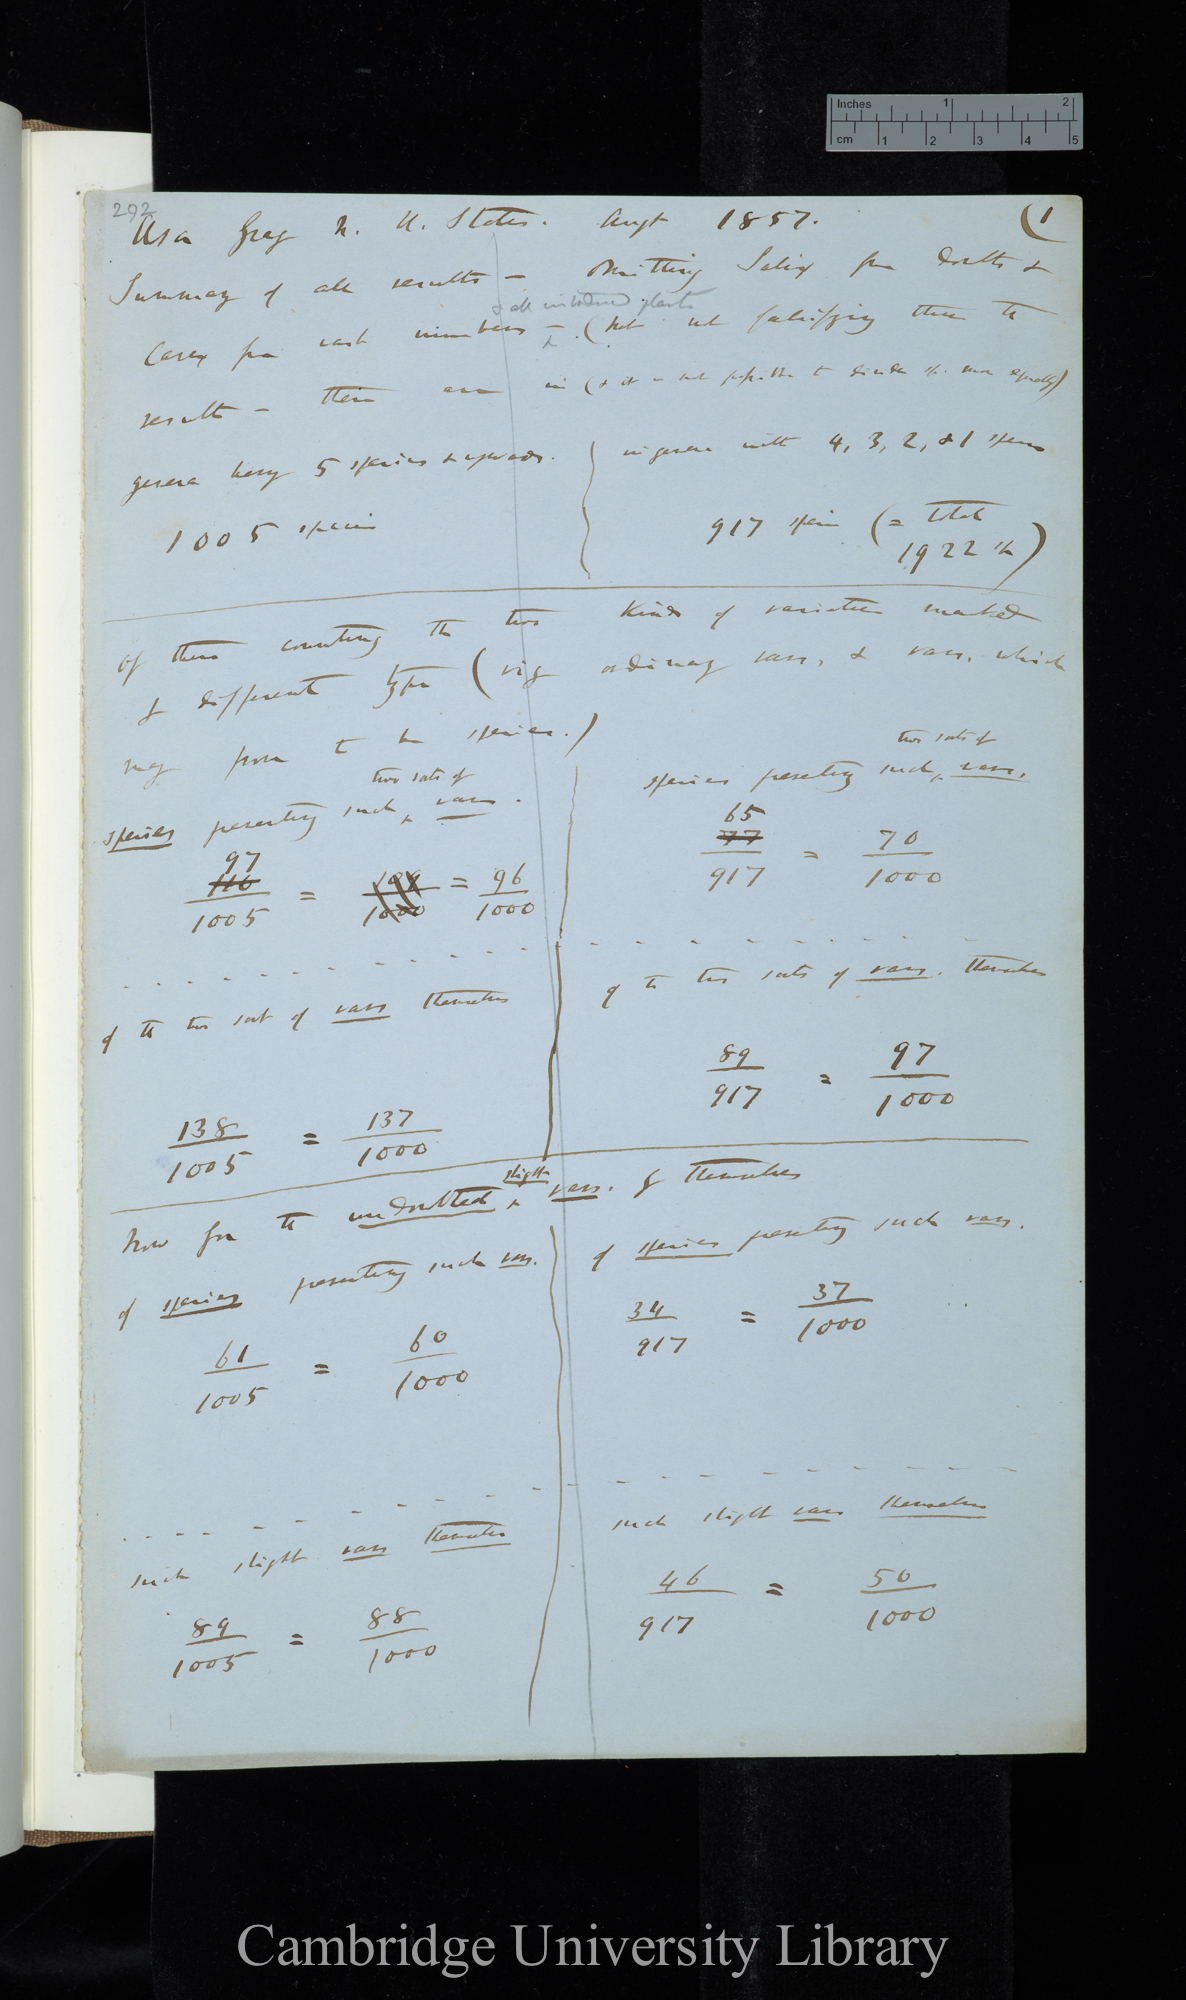 Inches 1 2
cm 1 2 3 4 5
292
Asa Gray N. U. States. Augt 1857. (1
Summary of all results — Omitting Salix from doubts &
& all introduced plants
Carex from vast numbers — (but not falsifying them the
result — there are in (& it is not possible to divide sp. more equally)
genera having 5 species & upwards. in genera with 4, 3, 2, & 1 species
1005 species 917 species (= total
1922 sp)
Of these counting the two kinds of varieties marked
of different type (viz ordinary vars, & vars. which
may prove to be species.)
two sets of two sets of
species presenting such vars. species presenting such vars.
97 65
116/1005 = 109/1000 = 96/1000 77/917 = 70/1000
of the two sort of vars themselves of the two sorts of vars. themselves
138/1005 = 137/1000 89/917 = 97/1000
slight
Now for the undoubted vars. of themselves
of species presenting such vars. of species presenting such vars.
61/1005 = 60/1000 34/917 = 37/1000
such slight vars themselves such slight vars themselves
89/1005 = 88/1000 46/917 = 50/1000
Cambridge University Library